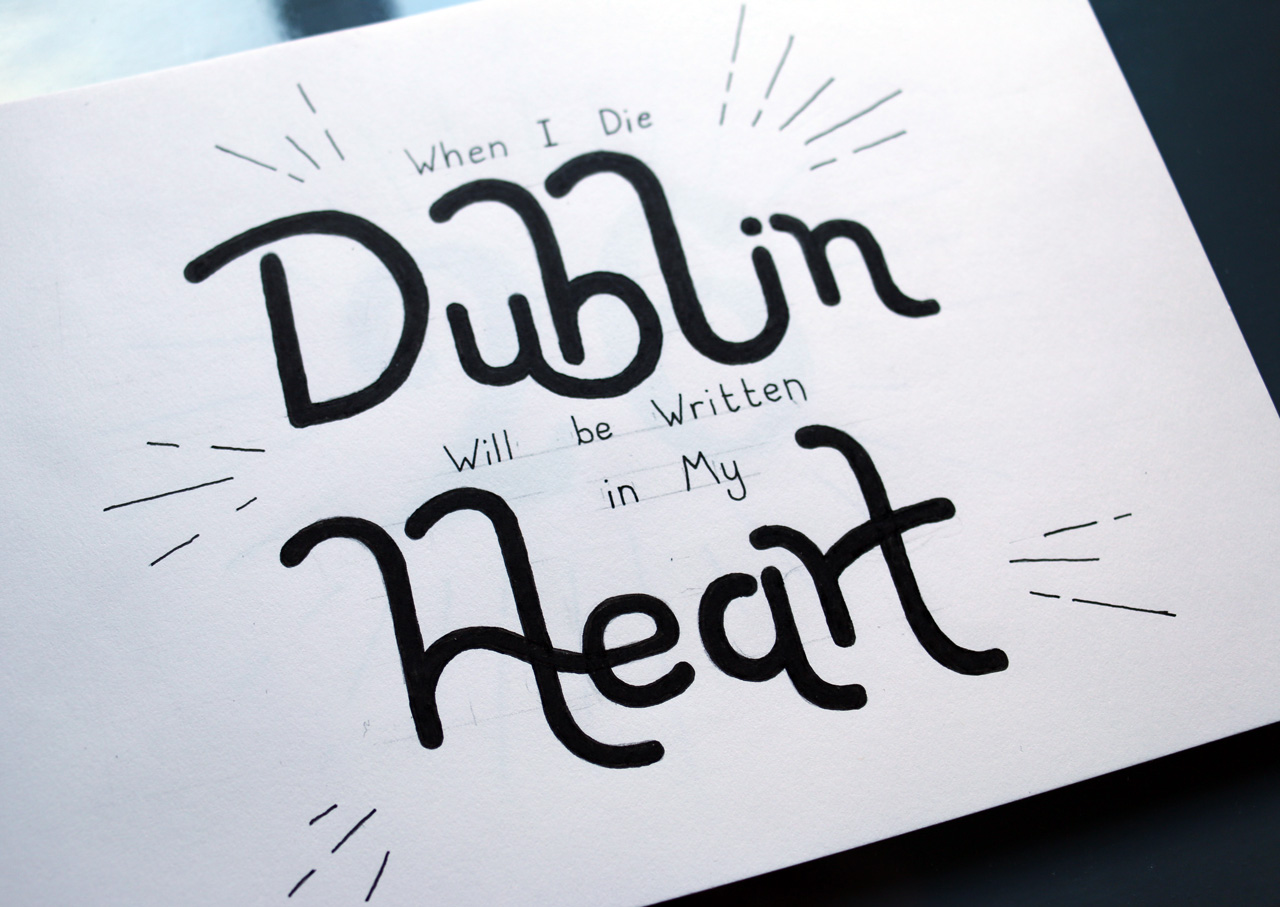 When I Die
Dublin
Will be Written
in My
Heart